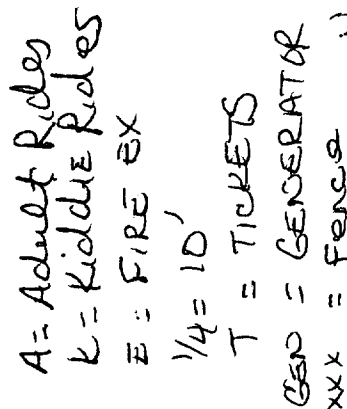 A = Adult Rides
K = Kiddie Rides
E = FIRE EX
1/4 = 10'
T = TICKETS
GEN = GENERATOR
xxx = Fence